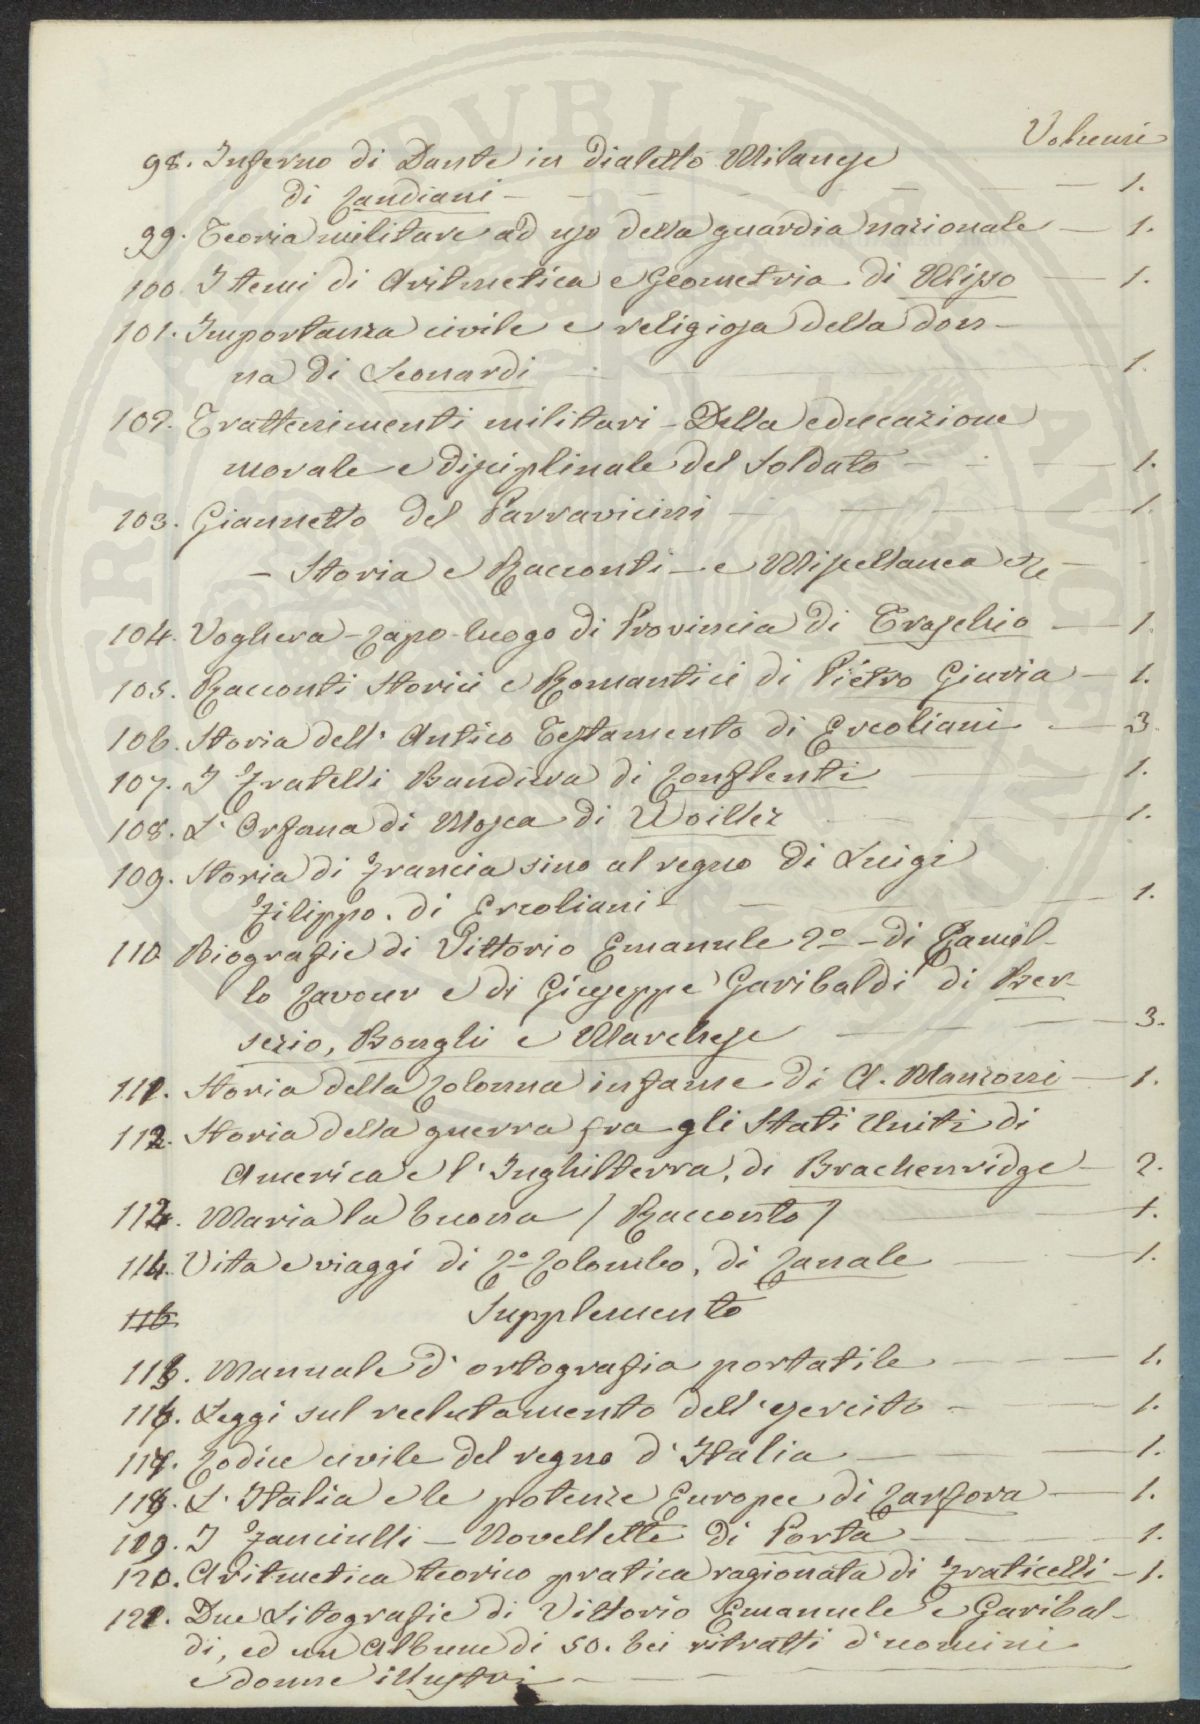 Volumi
98. Inferno di Dante in dialetto Milanese
di Candiani - 1.
99. Teoria militare ad uso della guardia nazionale - 1.
100. I temi di Aritmetica e Geometria di - 1.
101. Importanza civile e religiosa della don-
na di Leonardi - 1.
102. Trattenimenti militari - Della educazione
morale e disciplinale del Soldato - 1.
103. Giannetto del Parravicini - 1.
- Storia e Racconti - e Miscellanea -
104. Voghera - Capo-luogo di Provincia di - 1.
105. Racconti Storici e Romantici di Pietro Giuria - 1.
106. Storia dell'Antico Testamento di Ercoliani - 3.
107. I Fratelli Bandiera di Conflenti - 1.
108. L'Orfana di Mosca di Woillez - 1.
109. Storia di Francia sino al regno di Luigi
Filippo. di Ercoliani - 1.
110 Biografie di Vittorio Emanuele 2º - di Camil-
lo Cavour e di Giuseppe Garibaldi di Ber-
sezio, Bonghi e Marchese - 3.
111. Storia della Colonna infame di A. Manzoni - 1.
112. Storia della guerra fra gli Stati Uniti di
America e l'Inghilterra, di Brackenridge - 2.
113. Maria la buona / Racconto / - 1.
114. Vita e viaggi di Cº Colombo, di Canale - 1.
116 Supplemento
115. Manuale d'ortografia portatile - 1.
116. Leggi sul reclutamento dell'esercito - 1.
117. Codice civile del regno d'Italia - 1.
118. L'Italia e le potenze Europee di - 1.
119. I Fanciulli - Novellette di Porta - 1.
120. Aritmetica teorico pratica ragionata di Fraticelli - 1.
121. Due Litografie di Vittorio Emanuele e Garibal-
di, ed un Album di 50. bei ritratti d'uomini
e donne illustri -